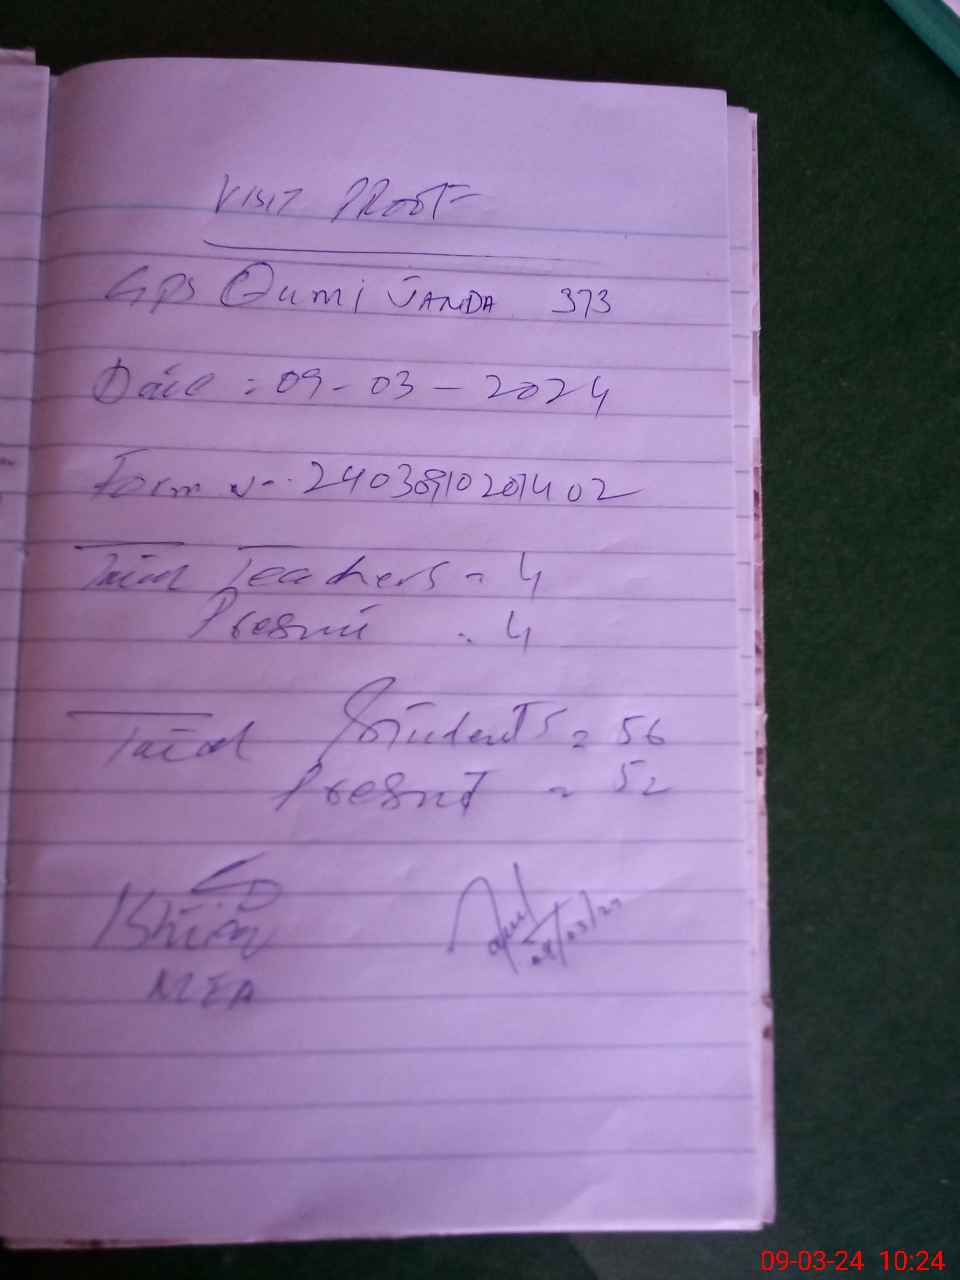 VISIT PROOF
GPS Qumi JANDA 373
Date : 09-03-2024
Form No. 
Total Teachers = 4
Present = 4
Total Students = 56
Present = 52
MEA
09-03-24 10:24